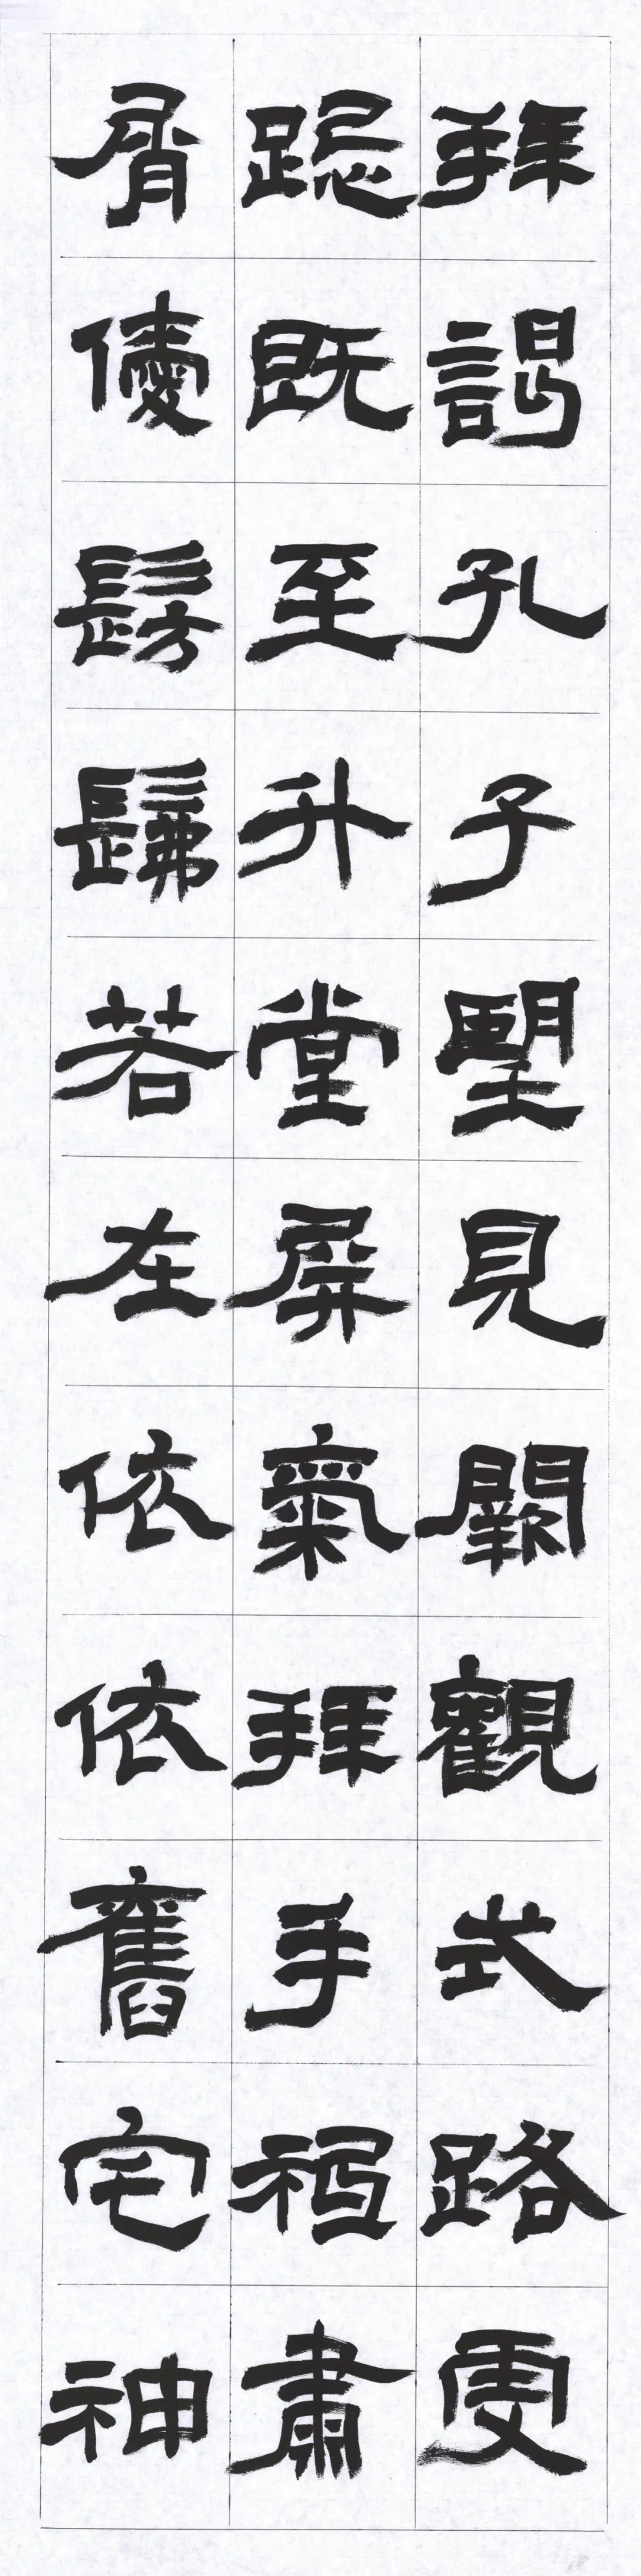 拜謁孔子望見闕觀式路虔
跽既至升堂屏氣拜手祗肅
屑僾髣髴若在依依舊宅神